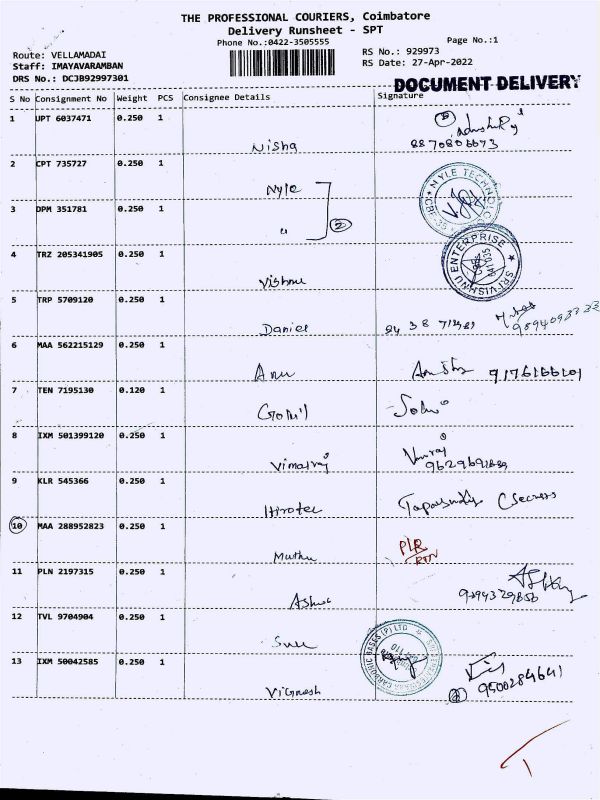 THE PROFESSIONAL COURIERS, Coimbatore
Delivery Runsheet - SPT
Phone No.:0422-3505555
Page No.:1
Route: VELLAMADAI
RS No.: 929973
Staff: IMAYAVARAMBAN
RS Date: 27-Apr-2022
DRS No.: DCJB92997301
DOCUMENT DELIVERY
S No Consignment No Weight PCS Consignee Details Signature
1 UPT 6037471 0.250 1 Nisha 8870806673
2 CPT 735727 0.250 1 Nyle
3 DPM 351781 0.250 1 " 2
4 TRZ 205341905 0.250 1 Vishnu
SRI VISHNU ENTERPRISE
5 TRP 5709120 0.250 1 Daniel
6 MAA 562215129 0.250 1 Anu 9176166101
7 TEN 7195130 0.120 1
8 IXM 501399120 0.250 1 Vimalraj
9 KLR 545366 0.250 1 Hirotec
10 MAA 288952823 0.250 1 Muthu
11 PLN 2197315 0.250 1
12 TVL 9704904 0.250 1
13 IXM 50042585 0.250 1 Vignesh 9500284641